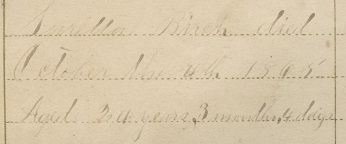 Birch died
October the 4th 1865
Aged 24 years, 3 months, 4 days